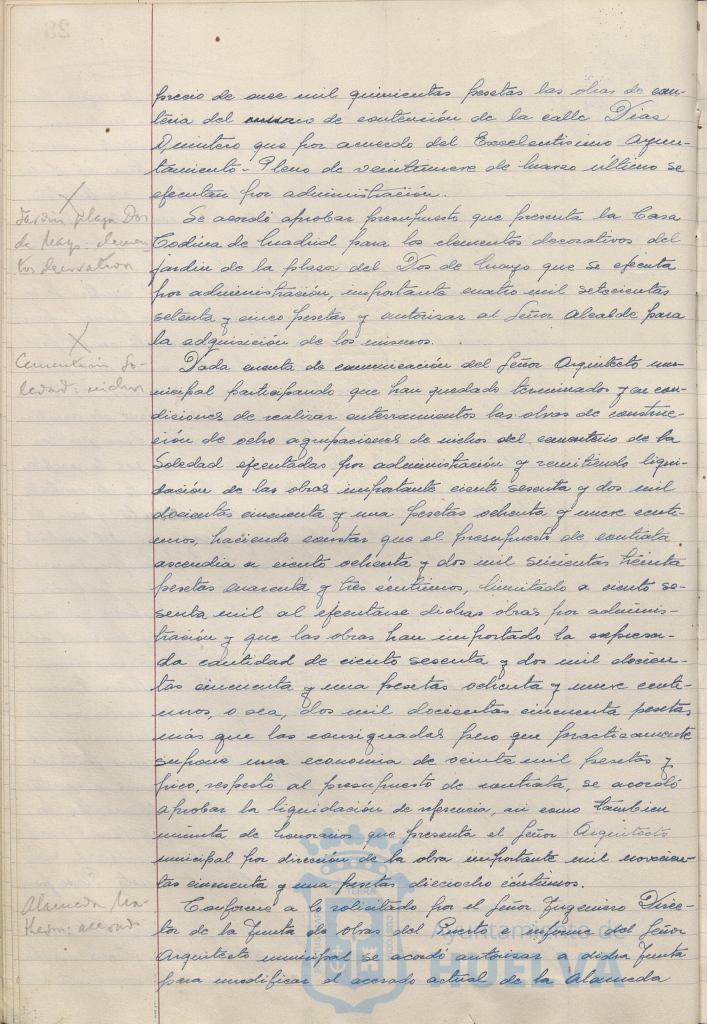 precio de once mil quinientas pesetas las obras de can-
tería del muro de contención de la calle Dias
Quintero que por acuerdo del Excelentísimo Ayun-
tamiento-Pleno de veintinueve de Marzo último se
ejecutan por administración.
Jardin plaza Dos
de Mayo: elemen-
tos decorativos
Se acordó aprobar presupuesto que presenta la Casa
Codina de Madrid para los elementos decorativos del
jardin de la plaza del Dos de Mayo que se ejecuta
por administración, importante cuatro mil setecientas
setenta y cinco pesetas y autorizar al Señor Alcalde para
la adquisición de los mismos.
Cementerio So-
ledad: nichos
Dada cuenta de comunicación del Señor Arquitecto mu-
nicipal participando que han quedado terminados y en con-
diciones de realizar enterramientos las obras de construc-
ción de ocho agrupaciones de nichos del cementerio de la
Soledad ejecutadas por administración y remitiendo liqui-
dación de las obras importante ciento sesenta y dos mil
docientas cincuenta y una pesetas ochenta y nueve cénti-
mos, haciendo constar que el presupuesto de contrata
ascendia a ciento ochenta y dos mil seicientas treinta
pesetas cuarenta y tres céntimos, limitado a ciento se-
senta mil al ejecutarse dichas obras por adminis-
tración y que las obras han importado la expresa-
da cantidad de ciento sesenta y dos mil docien-
tas cincuenta y una pesetas ochenta y nueve cénti-
mos, o sea, dos mil docientas cincuenta pesetas
más que las consignadas pero que practicamente
supone una economia de veinte mil pesetas y
pico, respecto al presupuesto de contrata, se acordó
aprobar la liquidación de referencia, asi como tambien
minuta de honorarios que presenta el Señor Arquitecto
municipal por dirección de la obra importante mil novecien-
tas cincuenta y una pesetas dieciocho céntimos.
Alameda
acerado
Conforme a lo solicitado por el Señor Ingeniero Direc-
tor de la Junta de obras del Puerto e informe del Señor
Arquitecto municipal se acordó autorizar a dicha Junta
para modificar el acerado actual de la Alameda
Ayuntamiento de
HUELVA